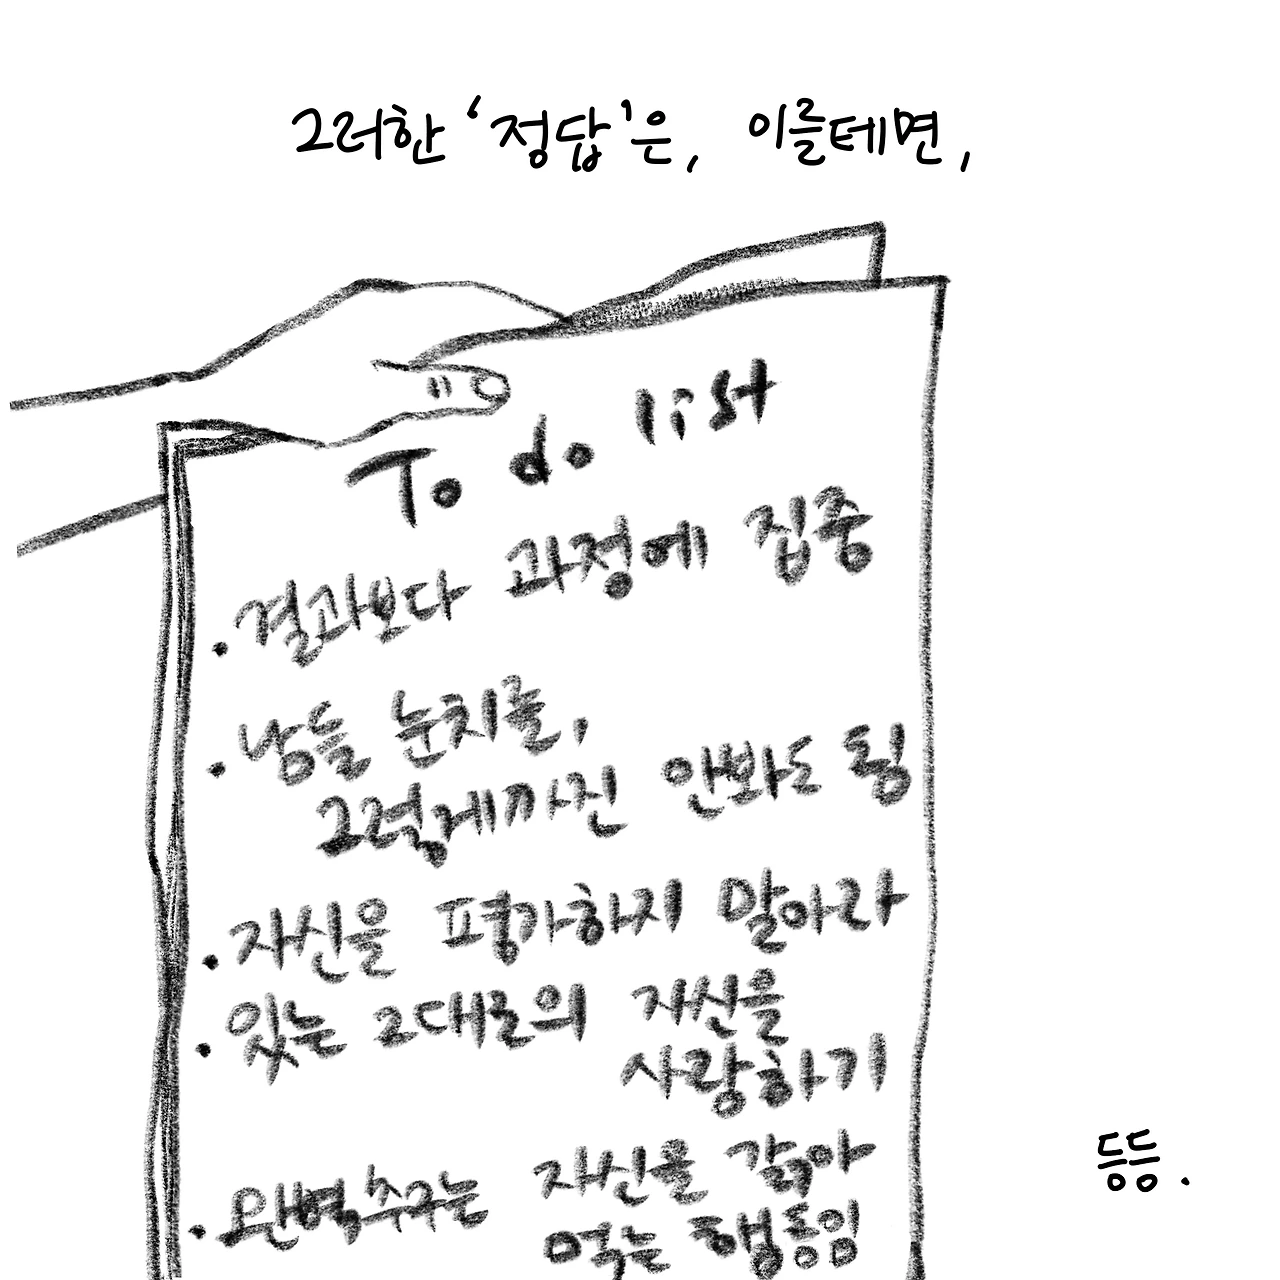 그러한 '정답'은, 이를테면,
To do list
· 결과보다 과정에 집중
· 남들 눈치를,
그렇게까진 안봐도 됨
· 자신을 평가하지 말아라
· 있는 그대로의 자신을
사랑하기
· 완벽추구는 자신을 갉아
먹는 행동임
등등.